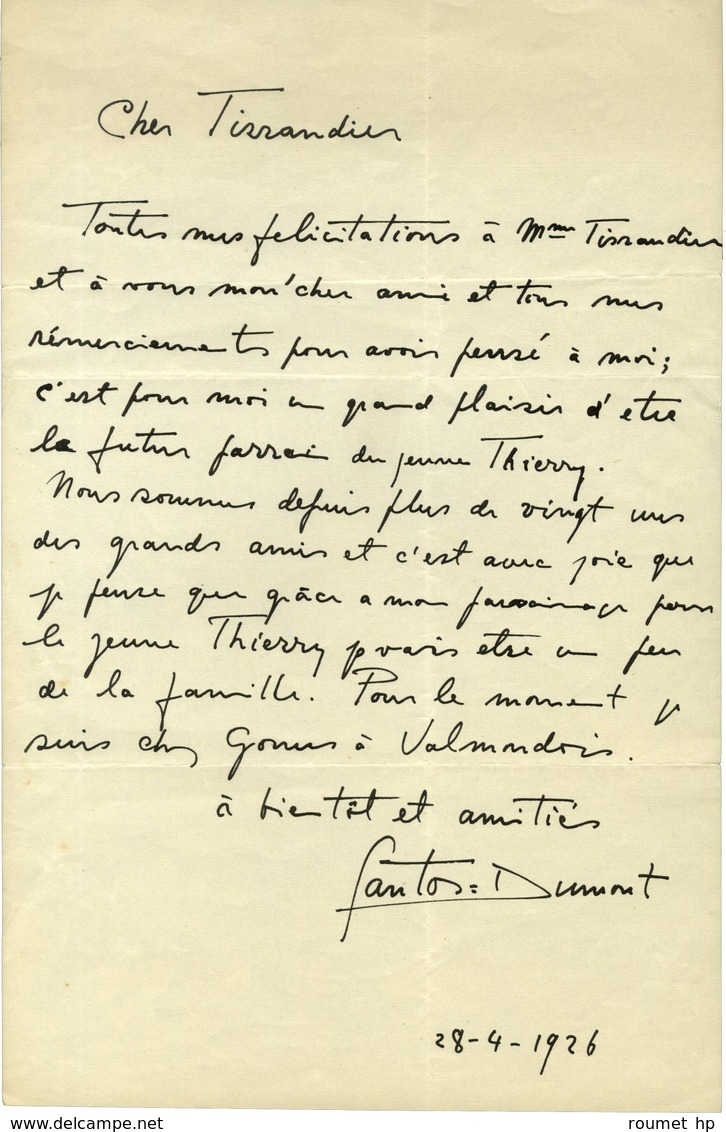 Cher Tissandier
Toutes mes felicitations à Mme Tissandier
et à vous mon cher ami et tous mes
rémerciements pour avoir pensé à moi;
c'est pour moi un grand plaisir d'etre
le futur parrai du jeune Thierry.
Nous sommes depuis plus de vingt ans
des grands amis et c'est avec joie que
je pense que grâce a mon parrainage pour
le jeune Thierry je vais etre un peu
de la famille. Pour le moment je
suis chez à Valmondois.
à bientôt et amitiés
Santos=Dumont
28-4-1926
www.delcampe.net
roumet hp